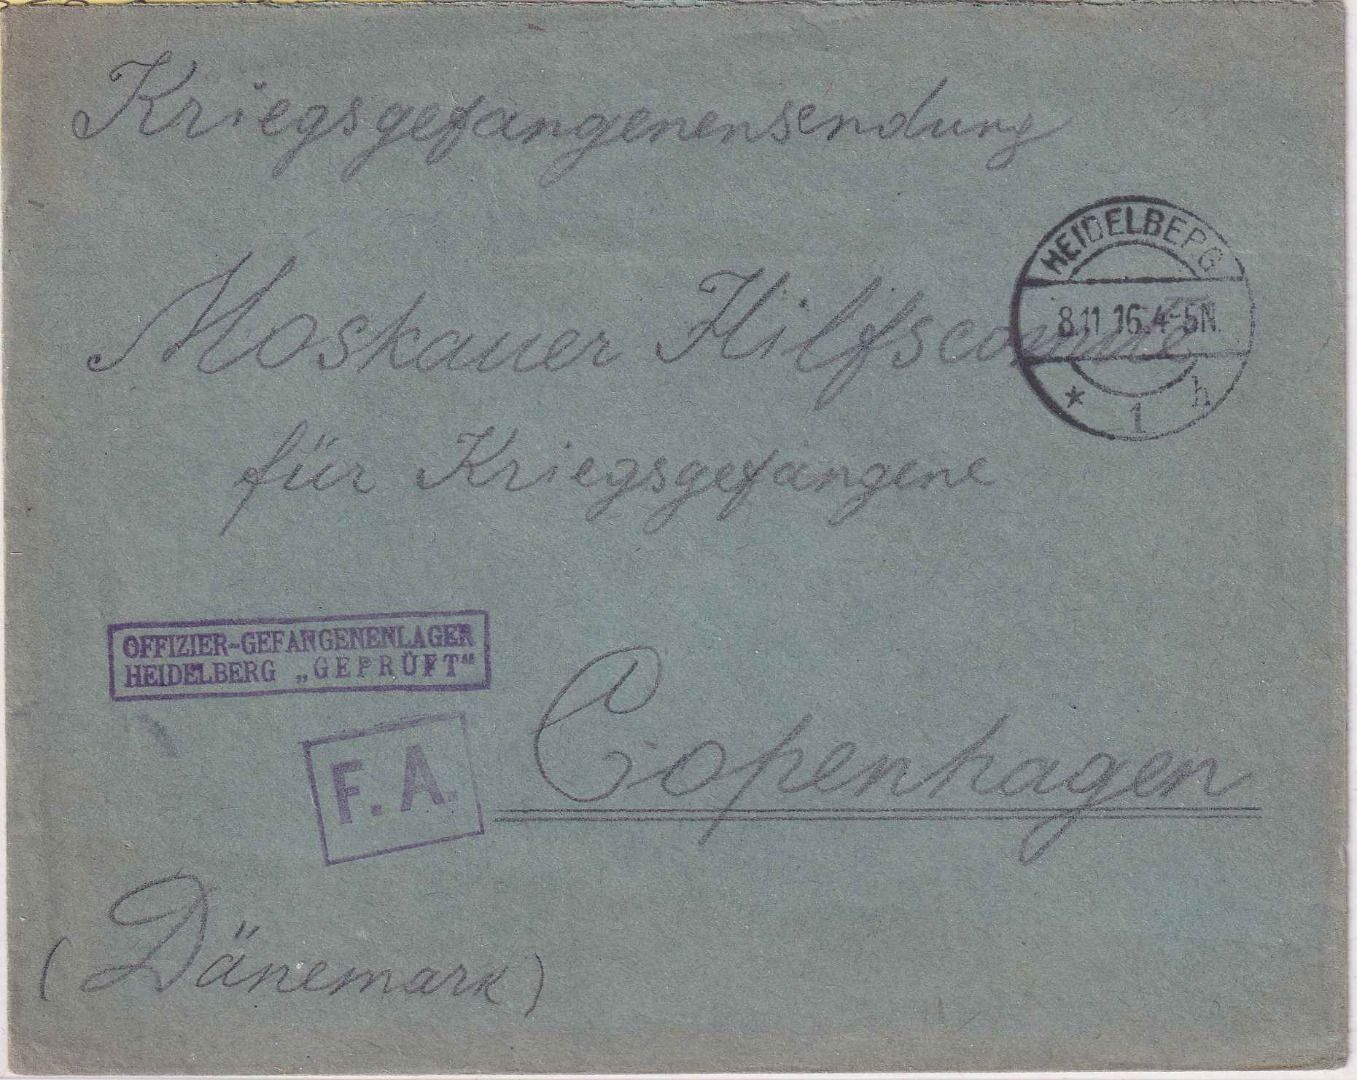 Kriegsgefangenensendung
HEIDELBERG
8.11.16.4-5N.
* 1 h
Moskauer Hilfscomité
für Kriegsgefangene
OFFIZIER-GEFANGENENLAGER
HEIDELBERG „GEPRÜFT“
F. A.
Copenhagen
(Dänemark)